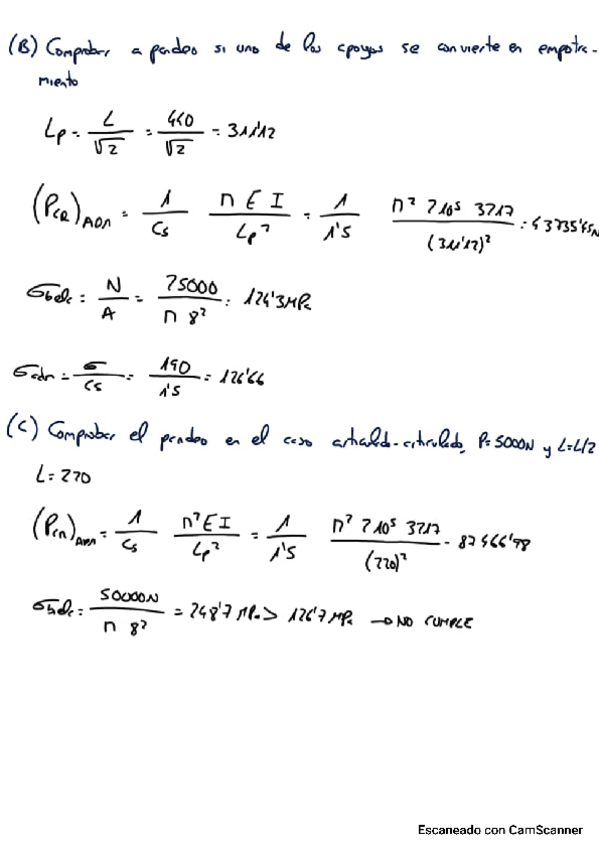 (B) Comprobar a pandeo si uno de los apoyos se convierte en empotra-
miento
Lp = L/√2 = 440/√2 = 311'12
(PCR)ADM = 1/Cs π E I/Lp² = 1/1'5 π² 2 10⁵ 3217/(311'12)² = 43735'45N
σbielc = N/A = 25000/π 8² = 124'3 MPa
σadm = σ/Cs = 190/1'5 = 126'66
(C) Comprobar el pandeo en el caso articulado-articulado, P=5000N y L=L/2
L = 220
(Pcn)ADM = 1/Cs π² E I/Lp² = 1/1'5 π² 2 10⁵ 3217/(220)² = 87466'98
= 50000N/π 8² = 248'7 MPa > 126'7 MPa → NO CUMPLE
Escaneado con CamScanner